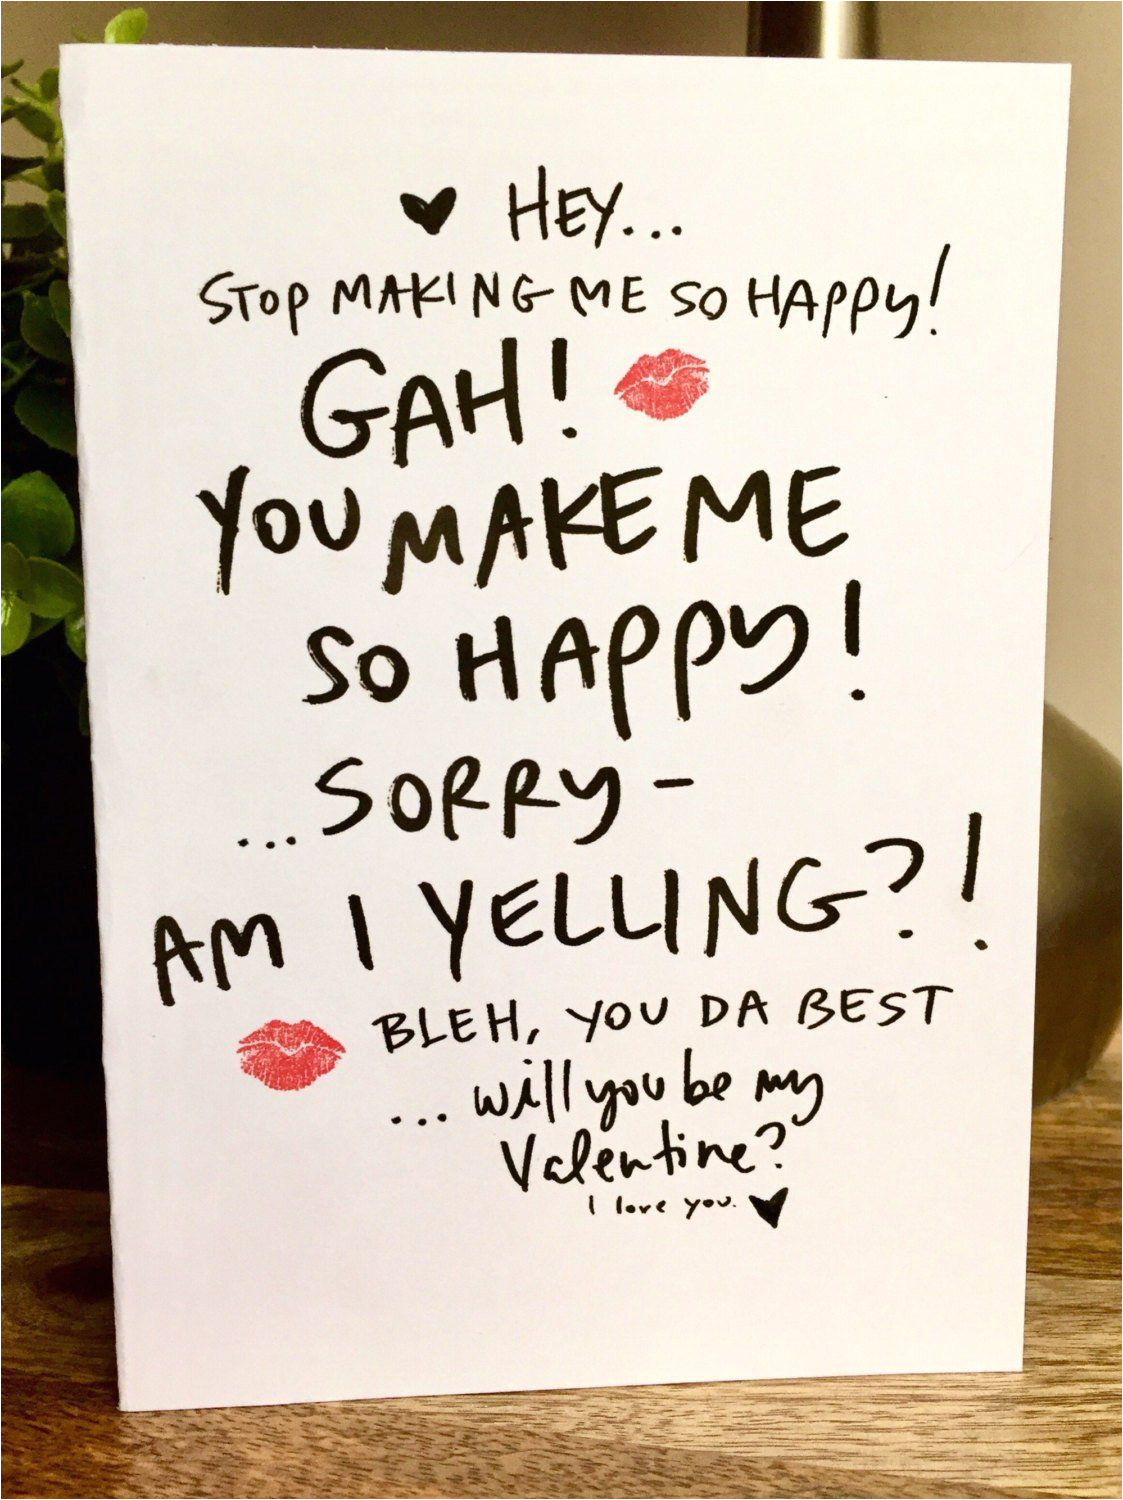 HEY...
STOP MAKING ME SO HAPPY!
GAH!
YOU MAKE ME
SO HAPPY!
...SORRY-
AM I YELLING?!
BLEH, YOU DA BEST
...will you be my
Valentine?
I love you.